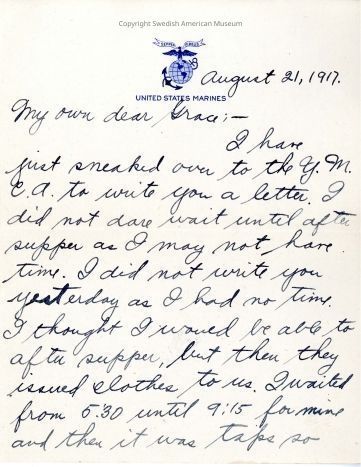 Copyright Swedish American Museum
SEMPER FIDELIS
August 21, 1917.
UNITED STATES MARINES
My own dear Grace;—
I have
just sneaked over to the Y. M.
C. A. to write you a letter. I
did not dare wait until after
supper as I may not have
time. I did not write you
yesterday as I had no time.
I thought I would be able to
after supper, but then they
issued clothes to us. I waited
from 5:30 until 9:15 for mine
and then it was taps so